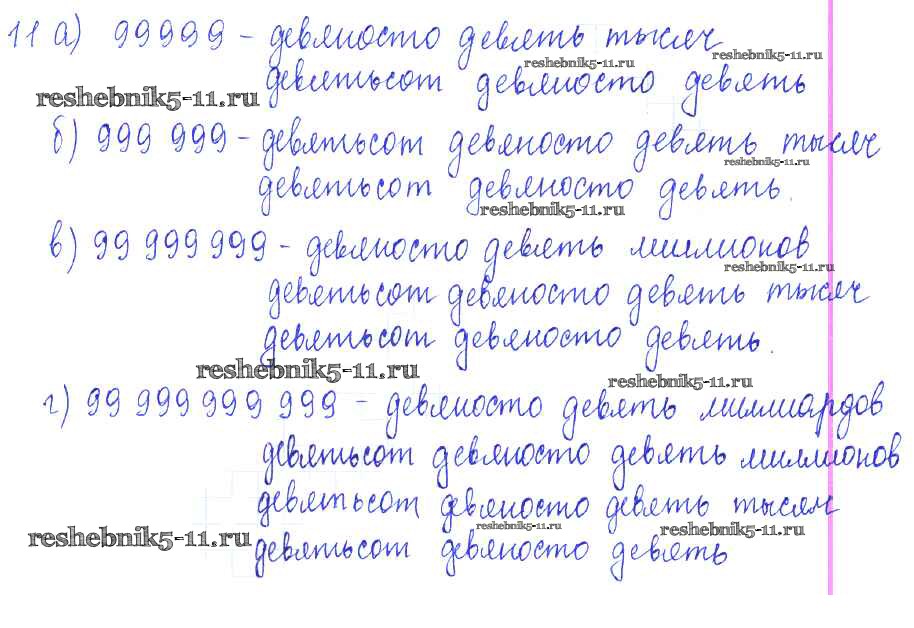 11 а) 99999 - девяносто девять тысяч
reshebnik5-11.ru
девятьсот девяносто девять
reshebnik5-11.ru
б) 999 999 - девятьсот девяносто девять тысяч
reshebnik5-11.ru
девятьсот девяносто девять.
reshebnik5-11.ru
в) 99 999 999 - девяносто девять миллионов
reshebnik5-11.ru
девятьсот девяносто девять тысяч
девятьсот девяносто девять.
reshebnik5-11.ru
reshebnik5-11.ru
г) 99 999 999 999 - девяносто девять миллиардов
девятьсот девяносто девять миллионов
девятьсот девяносто девять тысяч
reshebnik5-11.ru
reshebnik5-11.ru
reshebnik5-11.ru
девятьсот девяносто девять